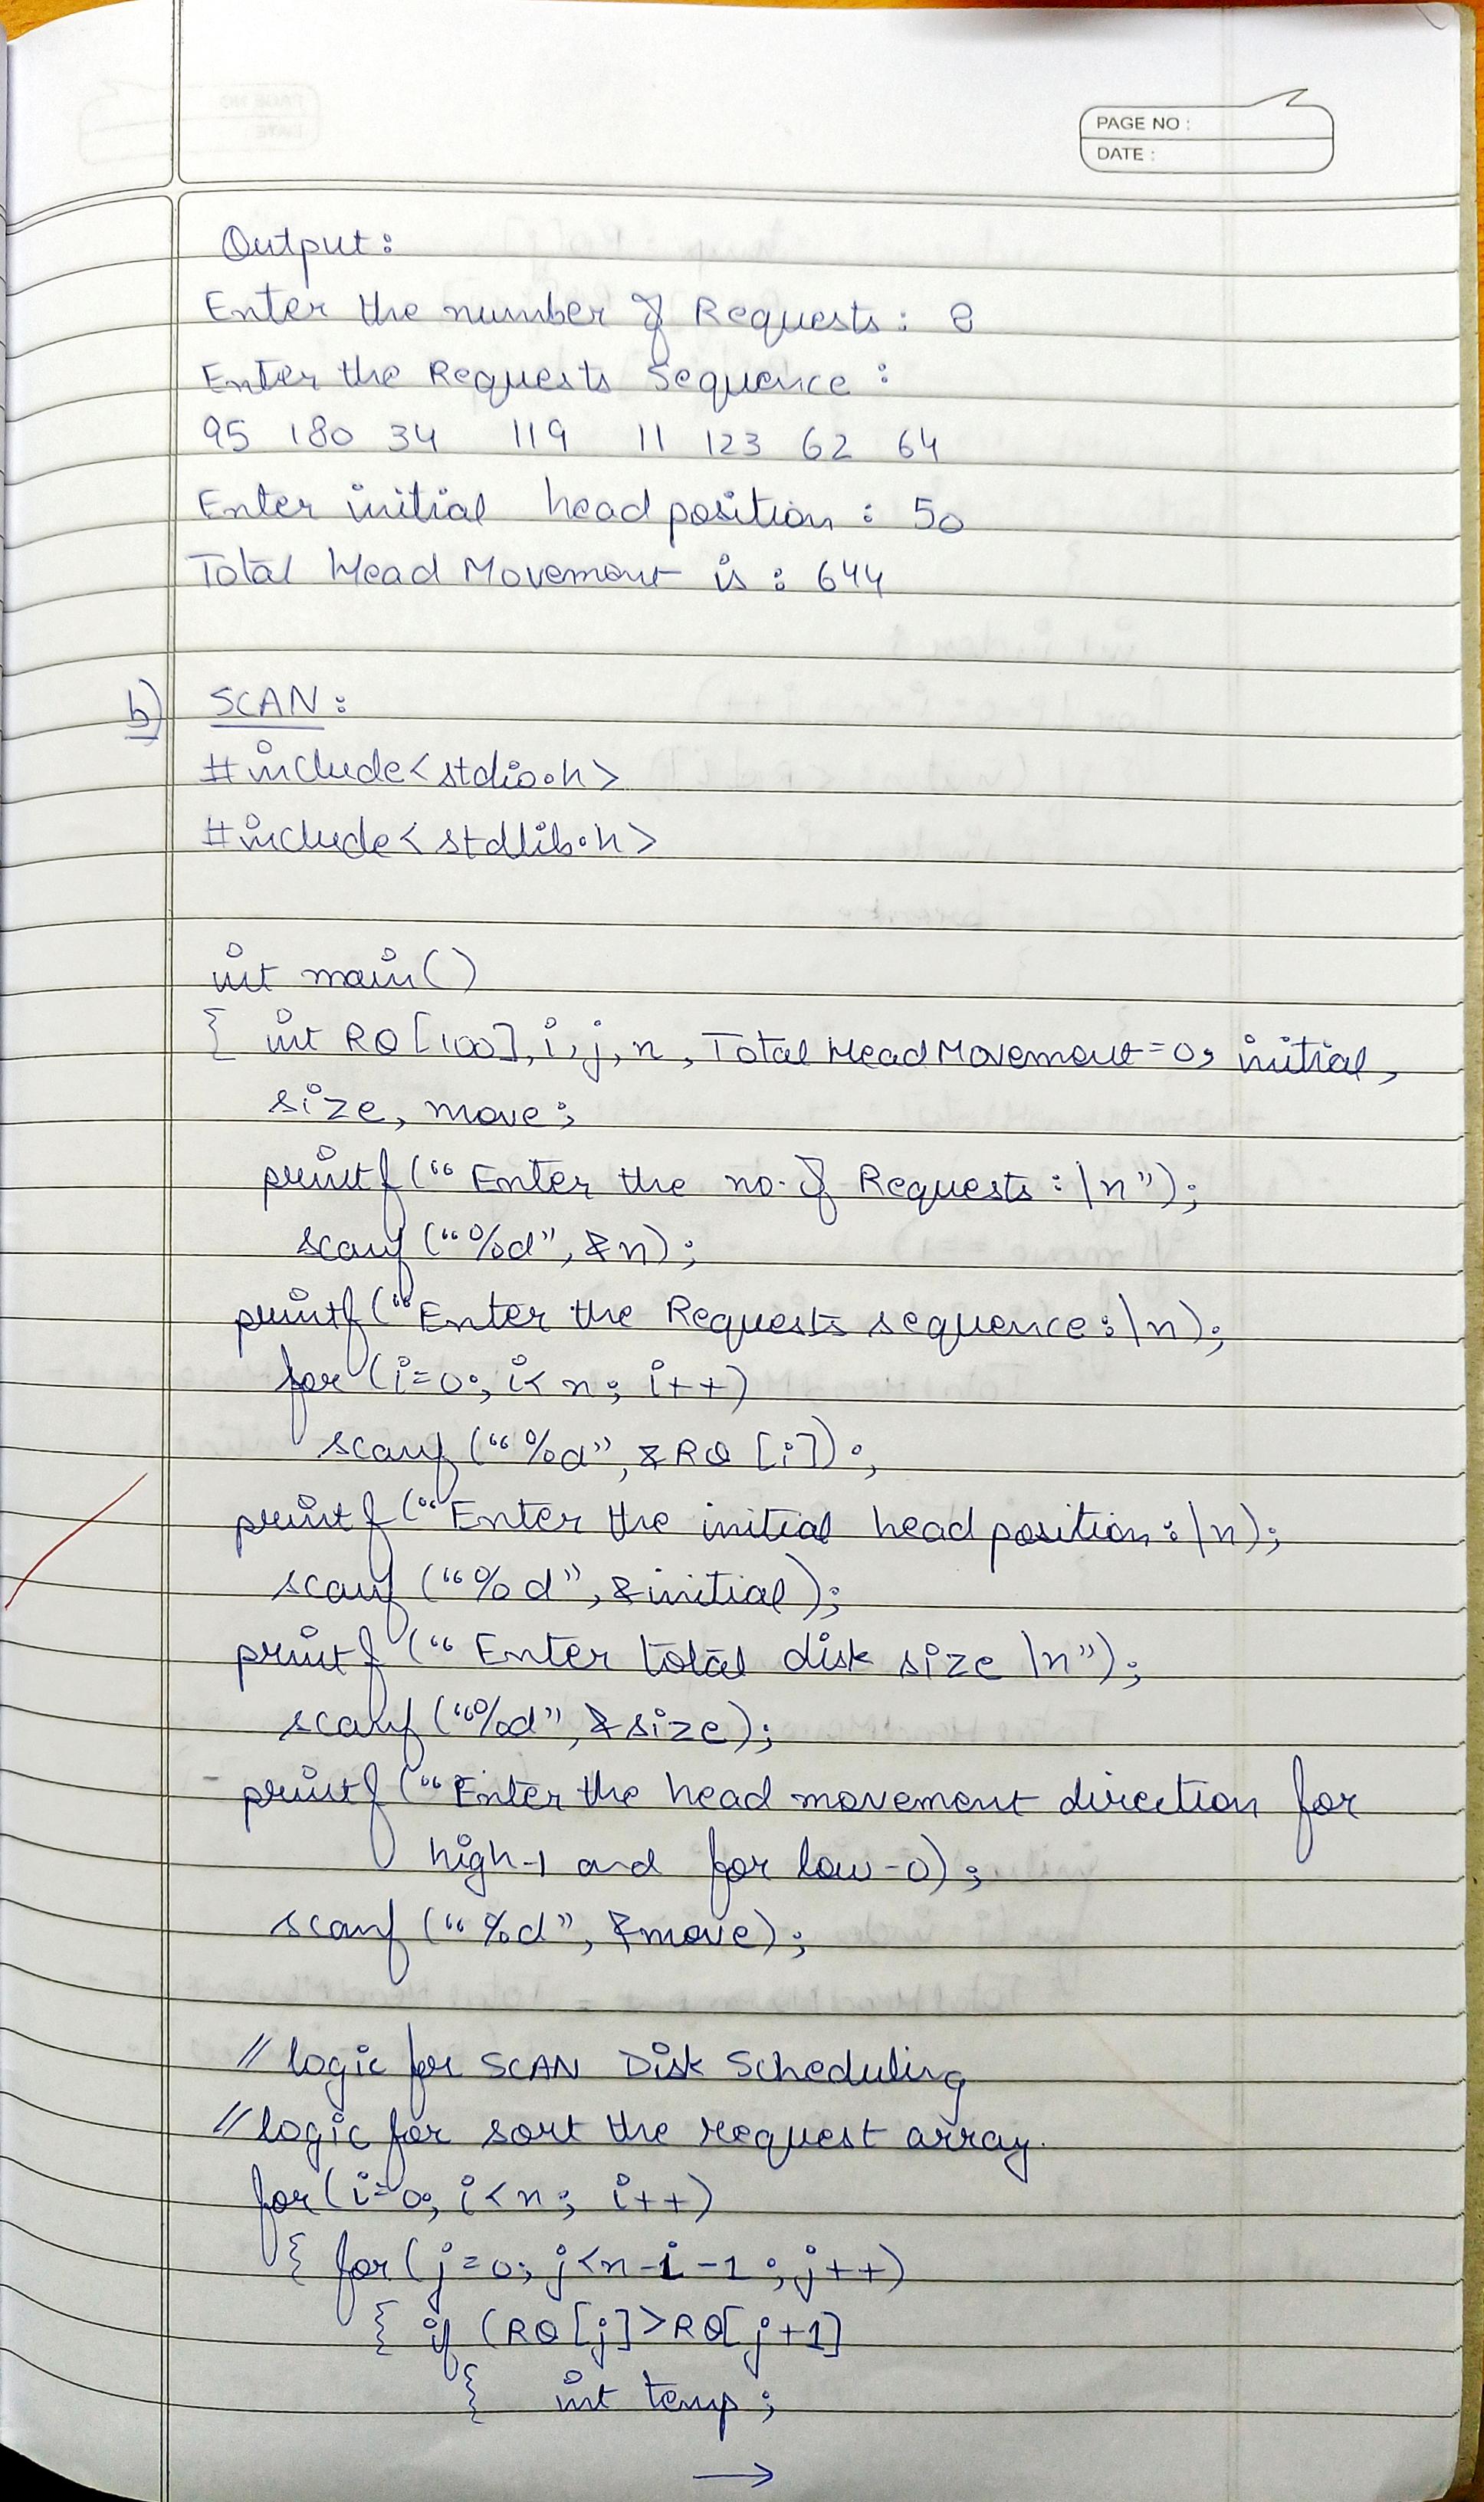 PAGE NO :
DATE :
Output:
Enter the number of Requests: 8
Enter the Requests Sequence :
95 180 34 119 11 123 62 64
Enter initial head position : 50
Total Head Movement is : 644
b) SCAN :
#include<stdio.h>
#include<stdlib.h>
int main()
{ int RQ[100], i, j, n, Total Head Movement=0, initial,
size, move;
printf("Enter the no. of Requests :\n");
scanf("%d", &n);
printf("Enter the Requests sequence:\n);
for (i=0; i<n; i++)
scanf("%d", &RQ[i]);
printf("Enter the initial head position:\n);
scanf("%d", &initial);
printf("Enter total disk size \n");
scanf("%d", &size);
- printf("Enter the head movement direction for
high-1 and for low-0);
scanf("%d", &move);
// logic for SCAN Disk Scheduling
// logic for sort the request array.
for(i=0; i<n; i++)
{ for(j=0; j<n-i-1; j++)
{ if (RQ[j]>RQ[j+1]
{ int temp;
→